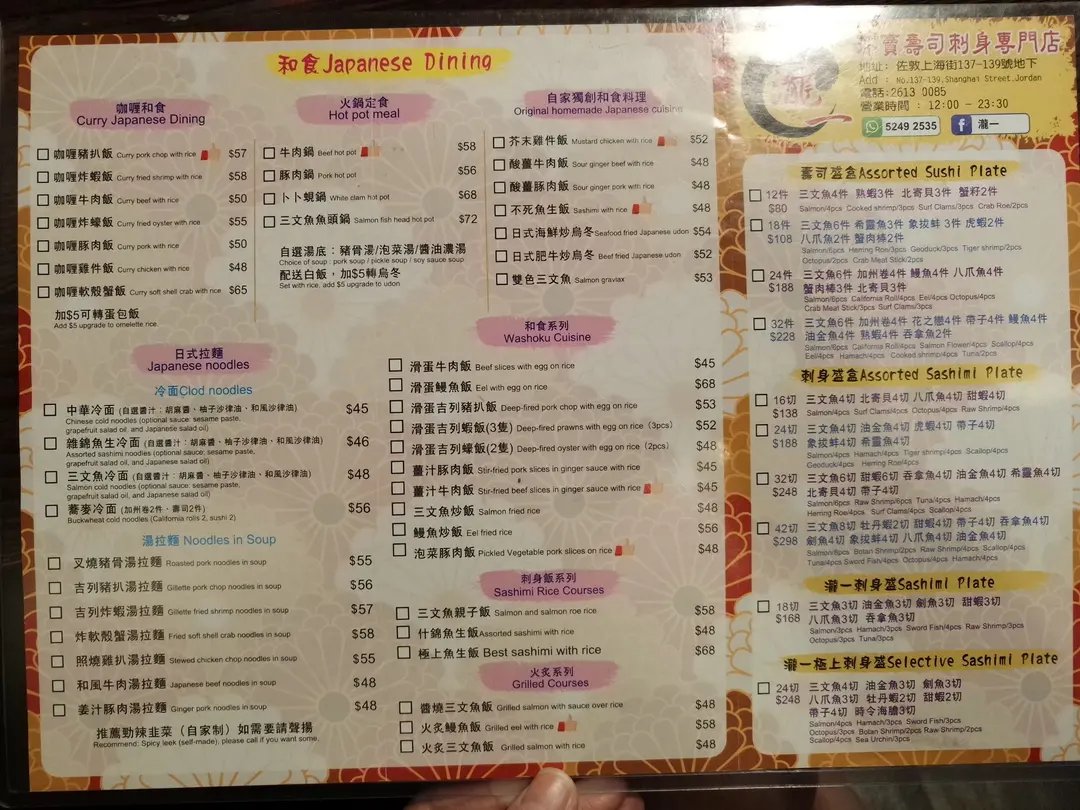 和食Japanese Dining
咖喱和食
Curry Japanese Dining
咖喱豬扒飯 Curry pork chop with rice $57
咖喱炸蝦飯 Curry fried shrimp with rice $58
咖喱牛肉飯 Curry beef with rice $50
咖喱炸蠔飯 Curry fried oyster with rice $55
咖喱豚肉飯 Curry pork with rice $50
咖喱雞件飯 Curry chicken with rice $48
咖喱軟殼蟹飯 Curry soft shell crab with rice $65
加$5可轉蛋包飯
Add $5 upgrade to omelette rice.
火鍋定食
Hot pot meal
牛肉鍋 Beef hot pot $58
豚肉鍋 Pork hot pot $56
卜卜蜆鍋 White clam hot pot $68
三文魚魚頭鍋 Salmon fish head hot pot $72
自選湯底：豬骨湯/泡菜湯/醬油濃湯
Choice of soup : pork soup / pickle soup / soy sauce soup
配送白飯，加$5轉烏冬
Set with rice, add $5 upgrade to udon
自家獨創和食料理
Original homemade Japanese cuisine
芥末雞件飯 Mustard chicken with rice $52
酸薑牛肉飯 Sour ginger beef with rice $48
酸薑豚肉飯 Sour ginger pork with rice $48
不死魚生飯 Sashimi with rice $48
日式海鮮炒烏冬Seafood fried Japanese udon $54
日式肥牛炒烏冬 Beef fried Japanese udon $52
雙色三文魚 Salmon gravlax $53
日式拉麵
Japanese noodles
冷面Clod noodles
中華冷面 (自選醬汁：胡麻醬、柚子沙律油、和風沙律油) $45
Chinese cold noodles (optional sauce: sesame paste,
grapefruit salad oil, and Japanese salad oil)
雜錦魚生冷面 (自選醬汁：胡麻醬、柚子沙律油、和風沙律油) $46
Assorted sashimi noodles (optional sauce: sesame paste,
grapefruit salad oil, and Japanese salad oil)
三文魚冷面 (自選醬汁：胡麻醬、柚子沙律油、和風沙律油) $48
Salmon cold noodles (optional sauce: sesame paste,
grapefruit salad oil, and Japanese salad oil)
蕎麥冷面 (加州卷2件、壽司2件) $56
Buckwheat cold noodles (California rolls 2, sushi 2)
湯拉麵 Noodles in Soup
叉燒豬骨湯拉麵 Roasted pork noodles in soup $55
吉列豬扒湯拉麵 Gillette pork chop noodles in soup $56
吉列炸蝦湯拉麵 Gillette fried shrimp noodles in soup $57
炸軟殼蟹湯拉麵 Fried soft shell crab noodles in soup $58
照燒雞扒湯拉麵 Stewed chicken chop noodles in soup $55
和風牛肉湯拉麵 Japanese beef noodles in soup $48
姜汁豚肉湯拉麵 Ginger pork noodles in soup $48
推薦勁辣韭菜（自家制）如需要請聲揚
Recommend: Spicy leek (self-made), please call if you want some.
和食系列
Washoku Cuisine
滑蛋牛肉飯 Beef slices with egg on rice $45
滑蛋鰻魚飯 Eel with egg on rice $68
滑蛋吉列豬扒飯 Deep-fired pork chop with egg on rice $53
滑蛋吉列蝦飯(3隻) Deep-fired prawns with egg on rice（3pcs） $52
滑蛋吉列蠔飯(2隻) Deep-fired oyster with egg on rice（2pcs） $48
薑汁豚肉飯 Stir-fried pork slices in ginger sauce with rice $45
薑汁牛肉飯 Stir-fried beef slices in ginger sauce with rice $45
三文魚炒飯 Salmon fried rice $48
鰻魚炒飯 Eel fried rice $56
泡菜豚肉飯 Pickled Vegetable pork slices on rice $48
刺身飯系列
Sashimi Rice Courses
三文魚親子飯 Salmon and salmon roe rice $58
什錦魚生飯Assorted sashimi with rice $48
極上魚生飯 Best sashimi with rice $68
火炙系列
Grilled Courses
醬燒三文魚飯 Grilled salmon with sauce over rice $48
火炙鰻魚飯 Grilled eel with rice $58
火炙三文魚飯 Grilled salmon with rice $48
寶壽司刺身專門店
地址：佐敦上海街137-139號地下
Add : No.137-139,Shanghai Street,Jordan
電話:2613 0085
營業時間：12:00 - 23:30
5249 2535
瀧一
壽司盛盒Assorted Sushi Plate
12件 三文魚4件 熟蝦3件 北寄貝3件 蟹籽2件
$80 Salmon/4pcs Cooked shrimp/3pcs Surf Clams/3pcs Crab Roe/2pcs
18件 三文魚6件 希靈魚3件 象拔蚌 3件 虎蝦2件
$108 八爪魚2件 蟹肉棒2件
Salmon/6pcs Herring Ron/3pcs Geoduck/3pcs Tiger shrimp/2pcs
Octopus/2pcs Crab Meat Stick/2pcs
24件 三文魚6件 加州卷4件 鰻魚4件 八爪魚4件
$188 蟹肉棒3件 北寄貝3件
Salmon/6pcs California Roll/4pcs Eel/4pcs Octopus/4pcs
Crab Meat Stick/3pcs Surf Clams/3pcs
32件 三文魚6件 加州卷4件 花之戀4件 帶子4件 鰻魚4件
$228 油金魚4件 熟蝦4件 吞拿魚2件
Salmon/6pcs California Roll/4pcs Salmon Flower/4pcs Scallop/4pcs
Eel/4pcs Hamachi/4pcs Cooked shrimp/4pcs Tuna/2pcs
刺身盛盒Assorted Sashimi Plate
16切 三文魚4切 北寄貝4切 八爪魚4切 甜蝦4切
$138 Salmon/4pcs Surf Clams/4pcs Octopus/4pcs Raw Shrimp/4pcs
24切 三文魚4切 油金魚4切 虎蝦4切 帶子4切
$188 象拔蚌4切 希靈魚4切
Salmon/4pcs Hamachi/4pcs Tiger shrimp/4pcs Scallop/4pcs
Geoduck/4pcs Herring Roe/4pcs
32切 三文魚6切 甜蝦6切 吞拿魚4切 油金魚4切 希靈魚4切
$248 北寄貝4切 帶子4切
Salmon/6pcs Raw Shrimp/6pcs Tuna/4pcs Hamachi/4pcs
Herring Roe/4pcs Surf Clams/4pcs Scallop/4pcs
42切 三文魚8切 牡丹蝦2切 甜蝦4切 帶子4切 吞拿魚4切
$298 劍魚4切 象拔蚌4切 八爪魚4切 油金魚4切
Salmon/8pcs Botan Shrimp/2pcs Raw Shrimp/4pcs Scallop/4pcs
Tuna/4pcs Sword Fish/4pcs Octopus/4pcs Hamachi/4pcs
瀧一刺身盛Sashimi Plate
18切 三文魚3切 油金魚3切 劍魚3切 甜蝦3切
$168 八爪魚3切 吞拿魚3切
Salmon/3pcs Hamachi/3pcs Sword Fish/4pcs Raw Shrimp/3pcs
Octopus/3pcs Tuna/3pcs
瀧一極上刺身盛Selective Sashimi Plate
24切 三文魚4切 油金魚3切 劍魚3切
$248 八爪魚3切 牡丹蝦2切 甜蝦2切
帶子4切 時令海膽3切
Salmon/4pcs Hamachi/3pcs Sword Fish/3pcs
Octopus/3pcs Botan Shrimp/2pcs Raw Shrimp/2pcs
Scallop/4pcs Sea Urchin/3pcs